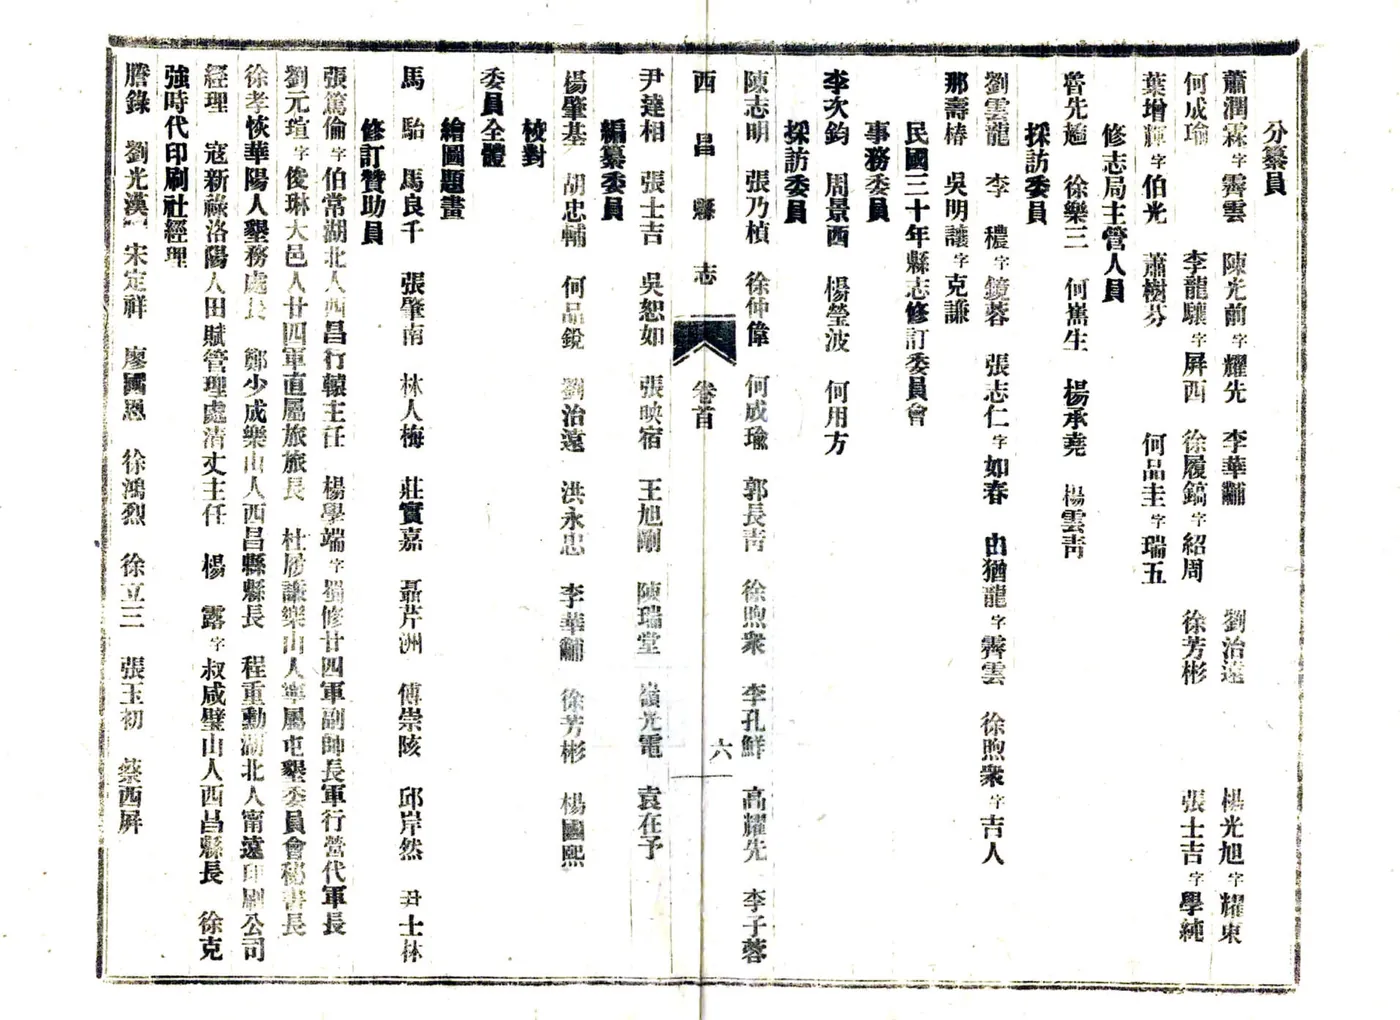 分纂員
蕭潤霖字霽雲　陳光前字耀先　李華黼　劉治遠　楊光旭字耀東
何成瑜　李龍驤字屏西　徐履鎬字紹周　徐芳彬　張士吉字學純
葉增輝字伯光　蕭樹芬　何品圭字瑞五
修志局主管人員
徐樂三　何嵩生　楊承堯　楊雲青
採訪委員
劉雲龍　李　禮字鏡蓉　張志仁字如春　由猶龍字霽雲　徐煦衆字吉人
那壽椿　吳明讓字克謙
民國三十年縣志修訂委員會
事務委員
李次鈞　周景西　楊瑩波　何用方
採訪委員
陳志明　張乃楨　徐仲偉　何成瑜　郭長青　徐煦衆　李孔鮮　高耀先　李子蓉
西昌縣志　卷首　六
尹達相　張士吉　吳恕如　張映宿　王旭剛　陳瑞堂　嶺光電　袁在予
編纂委員
楊肇基　胡忠輔　何品銳　劉治遠　洪永忠　李華黼　徐芳彬　楊國熙
校對
委員全體
繪圖題畫
馬　駘　馬良千　張肇南　林人梅　莊實嘉　聶芹洲　傅崇陔　邱岸然　尹士林
修訂贊助員
張篤倫字伯常湖北人西昌行轅主任　楊學端字蜀修廿四軍副帥長軍行營代軍長
劉元瑄字俊琳大邑人廿四軍直屬旅旅長　杜履謙樂山人寧屬屯墾委員會秘書長
徐孝恢華陽人墾務處長　鄭少成樂山人西昌縣縣長　程重勳湖北人甯遠印刷公司
經理　寇新祿洛陽人田賦管理處清丈主任　楊　露字叔咸璧山人西昌縣長　徐克
強時代印刷社經理
謄錄　劉光漢　宋定祥　廖國恩　徐鴻烈　徐立三　張玉初　蔡西屏